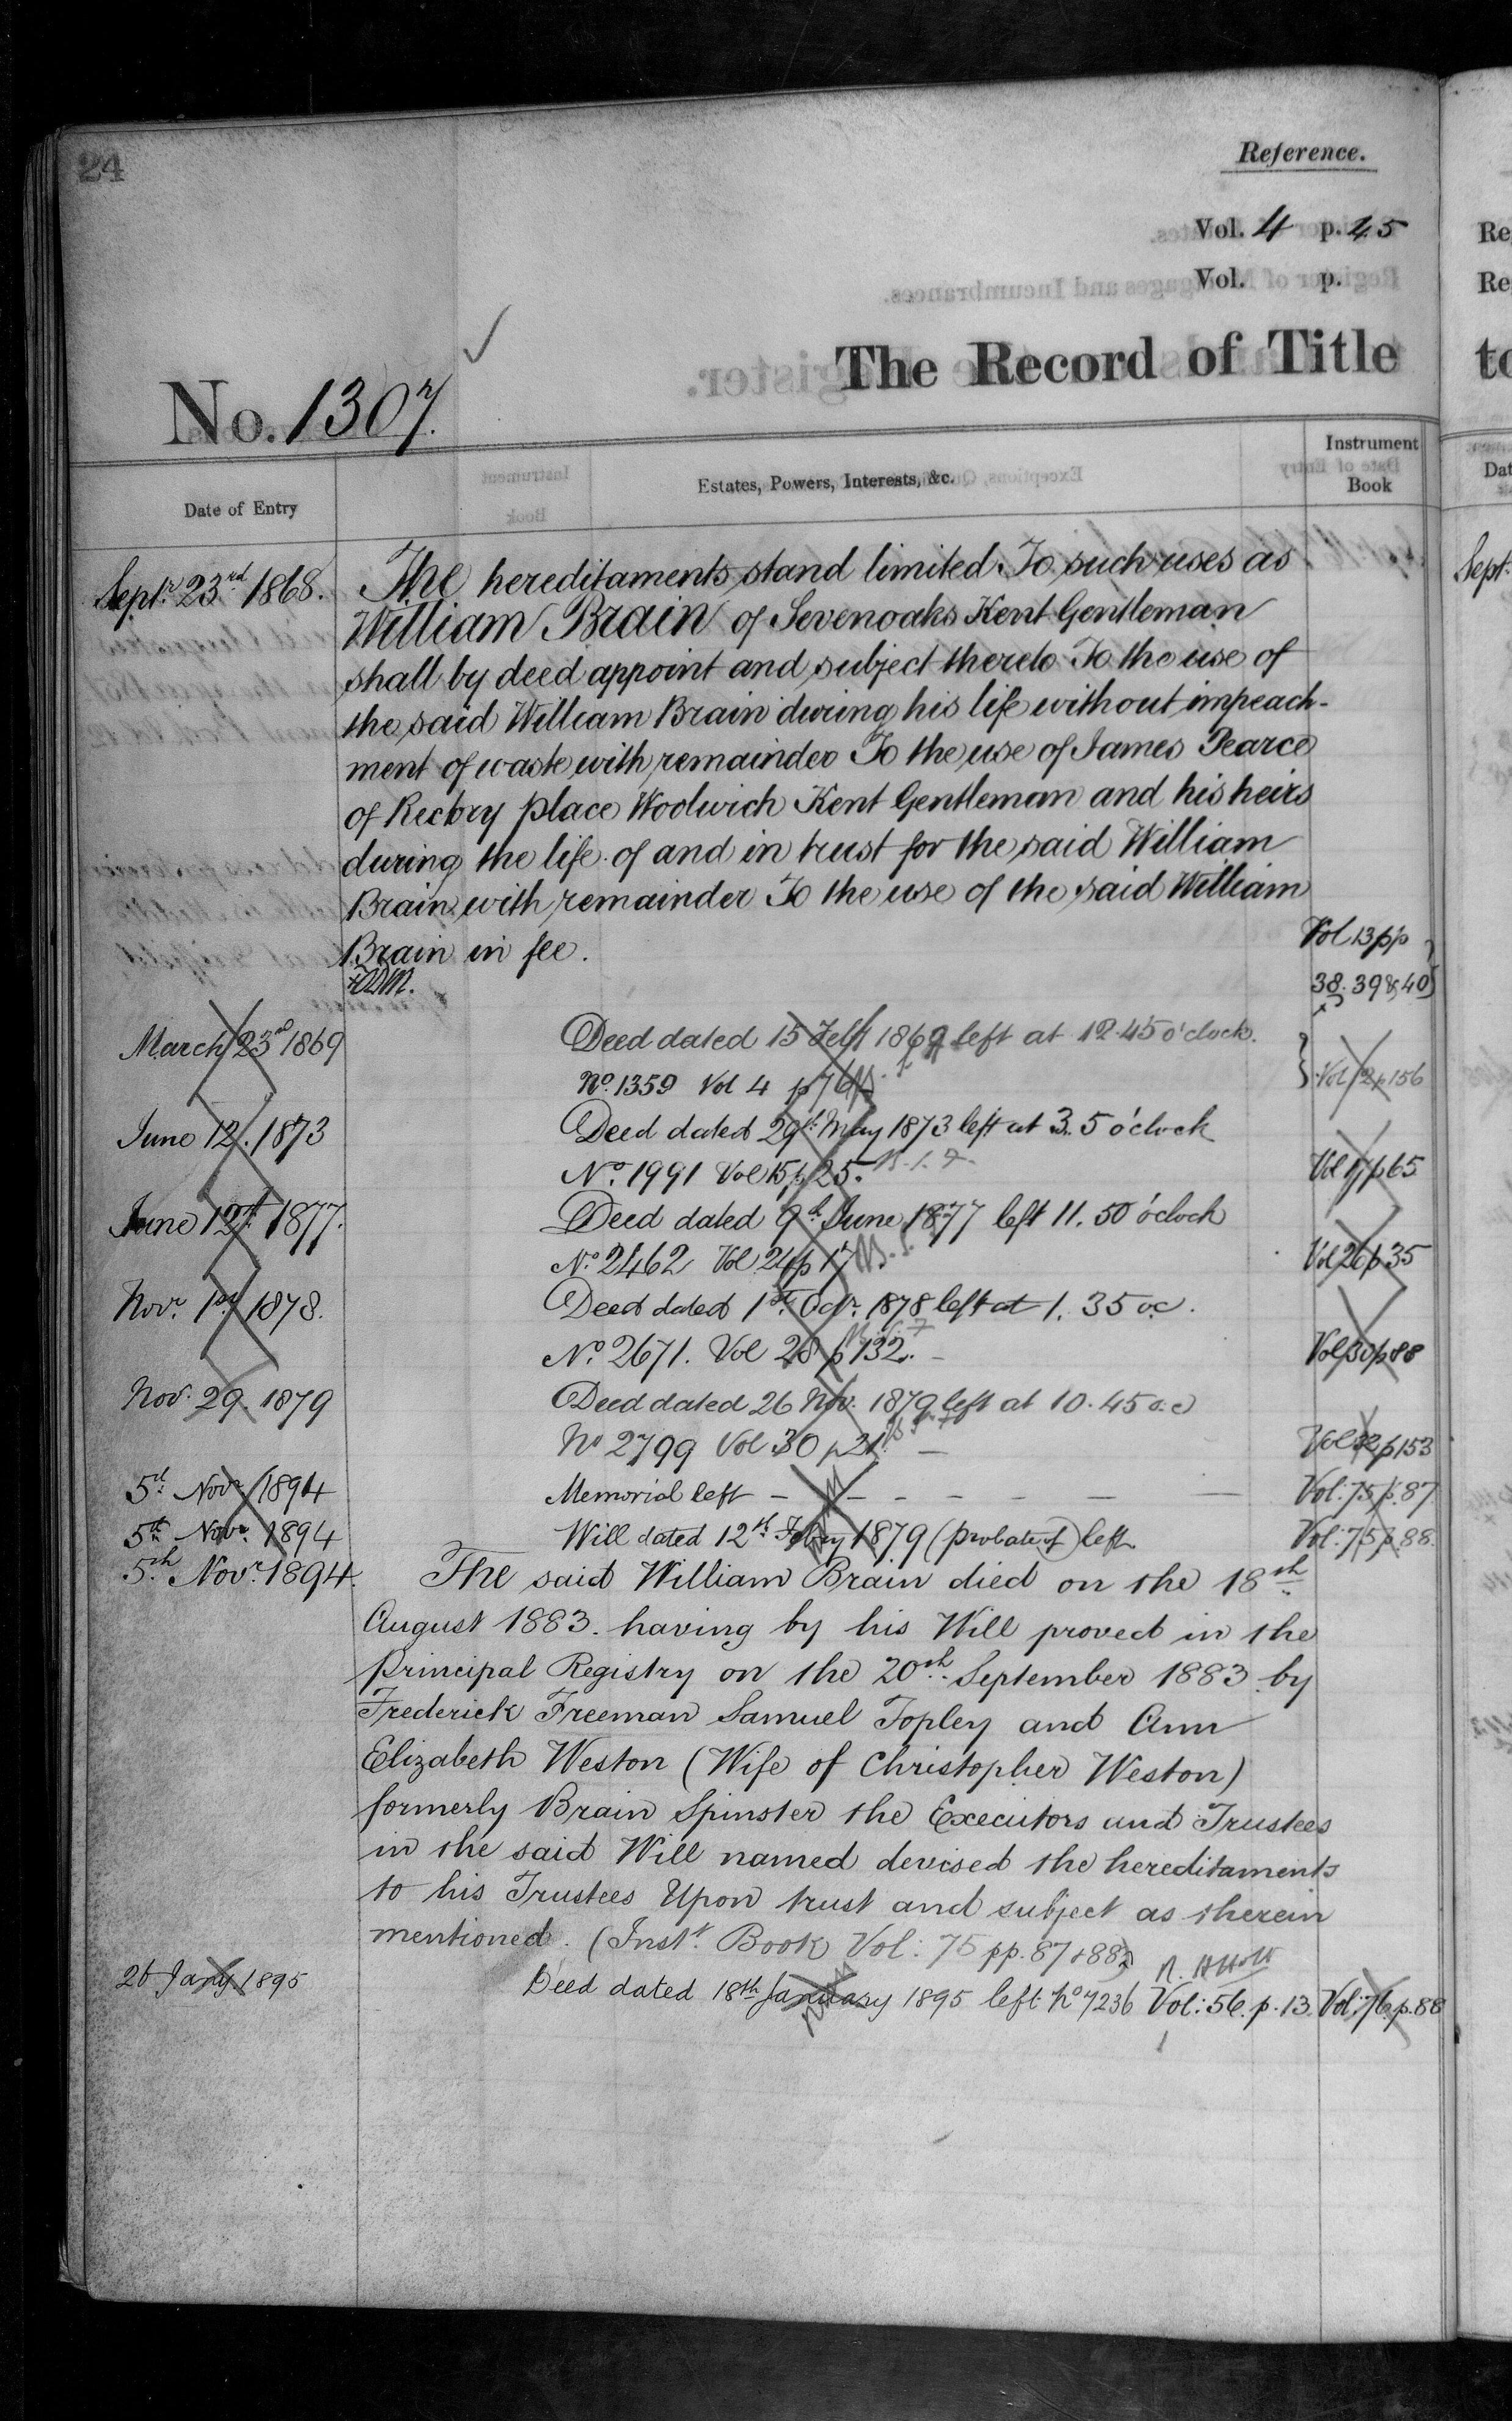 24
Reference.
Vol. 4 p. 45
Vol. p.
The Record of Title
No. 1307.
Date of Entry
Estates, Powers, Interests, &c.
Instrument Book
Septr. 23rd 1868. The hereditaments stand limited To such uses as
William Brain of Sevenoaks Kent Gentleman
shall by deed appoint and subject thereto To the use of
the said William Brain during his life without impeach-
ment of waste with remainder To the use of James Pearce
of Rectory place Woolwich Kent Gentleman and his heirs
during the life of and in trust for the said William
Brain with remainder To the use of the said William
Brain in fee. Vol 13 pp
38. 39 & 40
March 23rd 1869 Deed dated 15 Feb 1869 left at 12.45 o'clock.
No. 1359 Vol 4 p 76 Vol 12 p 156
June 12. 1873 Deed dated 29th May 1873 left at 3.5 o'clock
No. 1991 Vol 15 p 25. Vol 17 p 65
June 12th 1877. Deed dated 9th June 1877 left 11.50 o'clock
No. 2462 Vol 24 p 17 Vol 26 p 35
Novr. 1st 1878. Deed dated 1st Octr. 1878 left at 1.35 oc.
No. 2671. Vol 28 p 132. Vol 30 p 88
Nov. 29. 1879 Deed dated 26 Nov. 1879 left at 10.45 o.c
No 2799 Vol 30 p 21. Vol 32 p 153
5th Novr. 1894 Memorial left Vol: 75 p. 87
5th Novr. 1894 Will dated 12th Febry 1879 (probate of) left Vol: 75 p 88.
5th Novr. 1894. The said William Brain died on the 18th
August 1883. having by his Will proved in the
Principal Registry on the 20th September 1883 by
Frederick Freeman Samuel Topley and Ann
Elizabeth Weston (Wife of Christopher Weston)
formerly Brain Spinster the Executors and Trustees
in the said Will named devised the hereditaments
to his Trustees Upon trust and subject as therein
mentioned. (Instt. Book Vol: 75 pp. 87 + 88)
26 Jany. 1895 Deed dated 18th January 1895 left No 7236 Vol: 56. p. 13. Vol: 76. p. 88